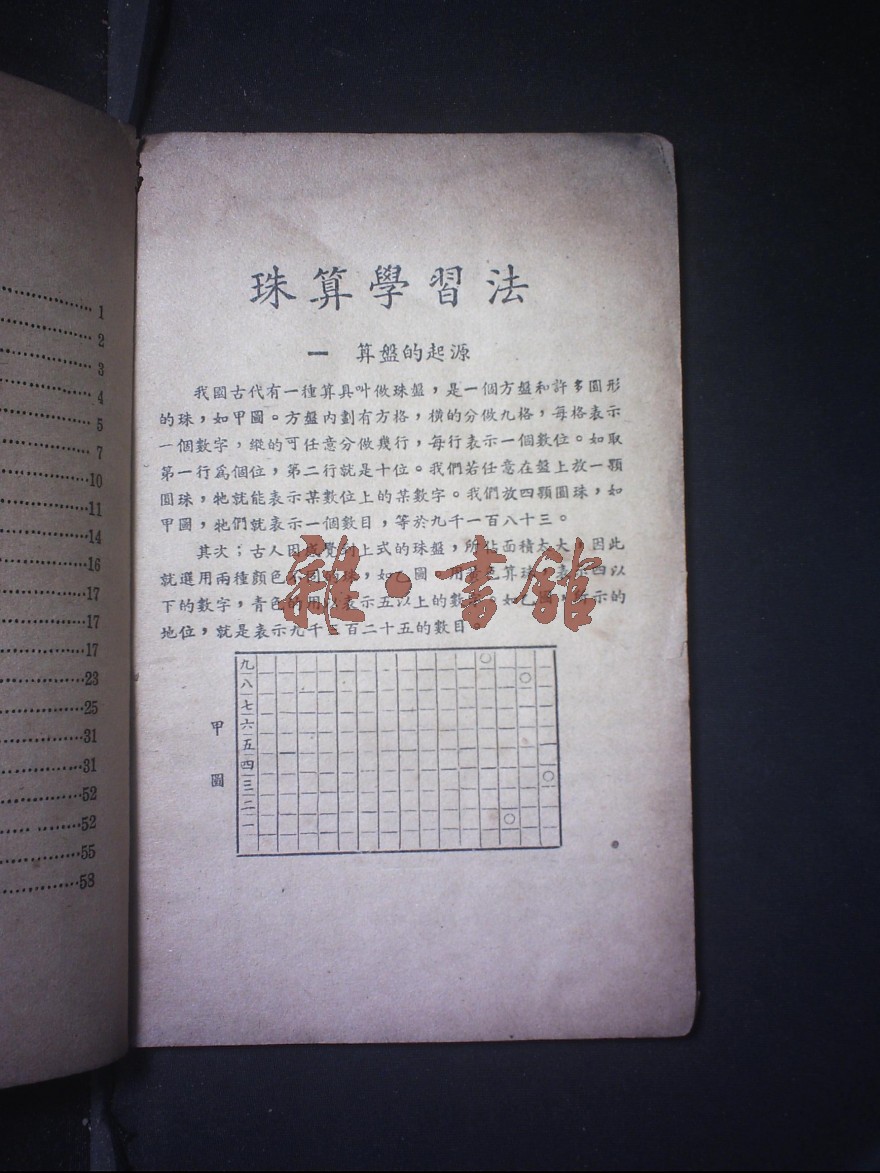 1
2
3
4
5
7
10
11
14
16
17
17
17
23
25
31
31
52
52
55
58
珠算學習法
一 算盤的起源
我國古代有一種算具叫做珠盤，是一個方盤和許多圓形
的珠，如甲圖。方盤內劃有方格，橫的分做九格，每格表示
一個數字，縱的可任意分做幾行，每行表示一個數位。如取
第一行爲個位，第二行就是十位。我們若任意在盤上放一顆
圓珠，牠就能表示某數位上的某數字。我們放四顆圓珠，如
甲圖，牠們就表示一個數目，等於九千一百八十三。
其次；古人因感覺到上式的珠盤，所佔面積太大，因此
就選用兩種顏色不同的珠，如乙圖。用黃色算珠，表示四以
下的數字，青色的用以表示五以上的數字，如乙圖，所示的
地位，就是表示九千三百二十五的數目。
雜·書館
甲圖
九
八
七
六
五
四
三
二
一